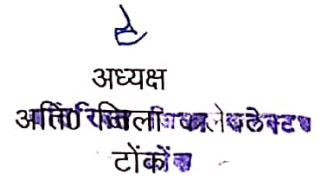 अध्यक्ष
अति0 जिला कलेक्टर
टोंक